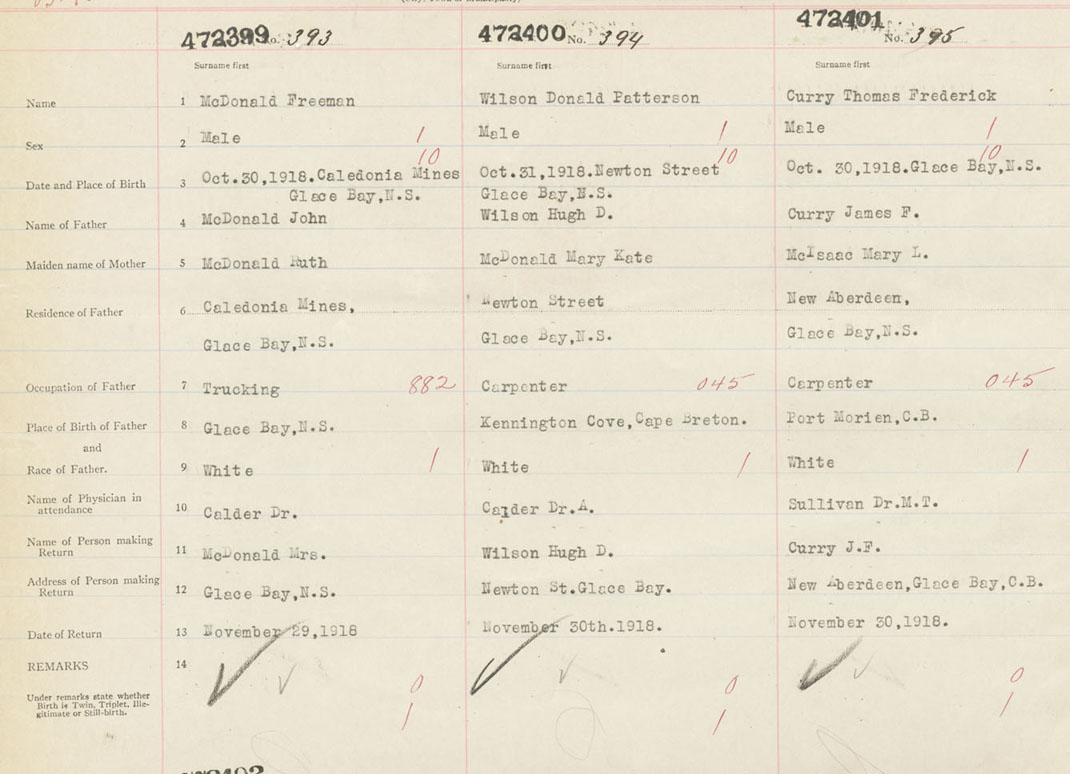 472399 No. 393 472400 No. 394 472401 No. 395
Surname first Surname first Surname first
Name 1 McDonald Freeman Wilson Donald Patterson Curry Thomas Frederick
Sex 2 Male 1 Male 1 Male 1
10 10 10
Date and Place of Birth 3 Oct.30,1918.Caledonia Mines Oct.31,1918.Newton Street Oct. 30,1918.Glace Bay,N.S.
Glace Bay,N.S. Glace Bay,N.S.
Name of Father 4 McDonald John Wilson Hugh D. Curry James F.
Maiden name of Mother 5 McDonald Ruth McDonald Mary Kate McIsaac Mary L.
Residence of Father 6 Caledonia Mines, Newton Street New Aberdeen,
Glace Bay,N.S. Glace Bay,N.S. Glace Bay,N.S.
Occupation of Father 7 Trucking 882 Carpenter 045 Carpenter 045
Place of Birth of Father 8 Glace Bay,N.S. Kennington Cove,Cape Breton. Port Morien,C.B.
and
Race of Father. 9 White 1 White 1 White 1
Name of Physician in
attendance 10 Calder Dr. Calder Dr.A. Sullivan Dr.M.T.
Name of Person making
Return 11 McDonald Mrs. Wilson Hugh D. Curry J.F.
Address of Person making
Return 12 Glace Bay,N.S. Newton St.Glace Bay. New Aberdeen,Glace Bay,C.B.
Date of Return 13 November 29,1918 November 30th.1918. November 30,1918.
REMARKS 14
0 0 0
Under remarks state whether
Birth is Twin, Triplet, Ille-
gitimate or Still-birth.
1 1 1